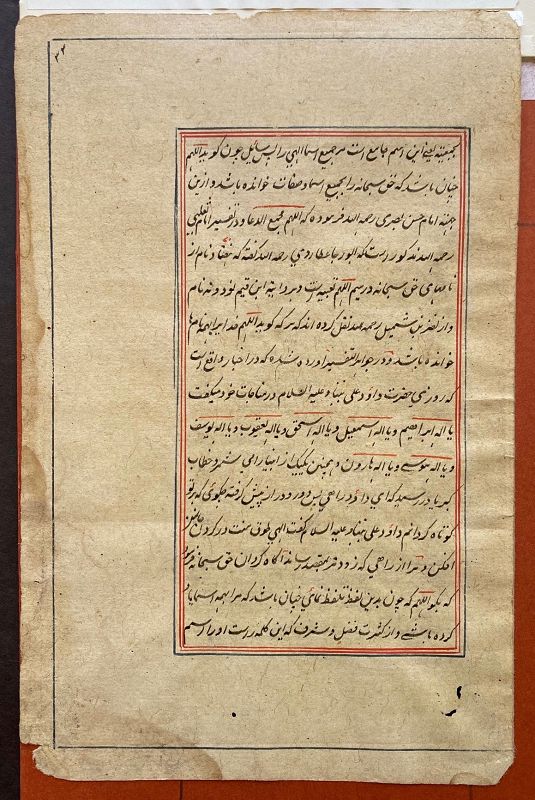 ۳۲
بجمعیته یعنی این اسم جامع است مر جمیع اسماء الهی را پس سایل چون گوید اللهم
چنان باشد که حق سبحانه را بجمیع اسما و صفات خوانده باشد و ازین
جهته امام حسن بصری رحمه الله فرموده که اللهم مجمع الدعا و در تفسیر امام ثعلبی
رحمه الله مذکور است که ابو رجا عطاردی رحمه الله گفته که هفتاد نام از
نامهای حق سبحانه در میم اللهم تعبیه است و بروایته ابن قیم نود و نه نام
و از نضر بن شمیل رحمه الله نقل کرده اند که هر که گوید اللهم خدا را بهمه نامها
خوانده باشد و در جواهر التفسیر آورده شده که در اخبار واقع است
که روزی حضرت داود علی نبینا و علیه السلام در مناجات خود میگفت
یا اله ابراهیم و یا اله اسمعیل و یا اله اسحق و یا اله یعقوب و یا اله یوسف
و یا اله موسی و یا اله هارون و همچنین یکیک از انبیا را می شمرد خطاب
کبریا در رسید که ای داود راهی بس دور و دراز پیش گرفته بگوی که بر تو
کوتاه گردانم داود علی نبینا و علیه السلام گفت الهی طوق منت در گردن
افکن و مرا از راهی که زودتر بمقصد رساند آگاه گردان حق سبحانه فرمود
که بگو اللهم که چون بدین لفظ تلفظ نمائی چنان باشد که مرا بهمه اسما یاد
کرده باشی و از کثرت فضل و شرف که این کلمه راست او را اسم